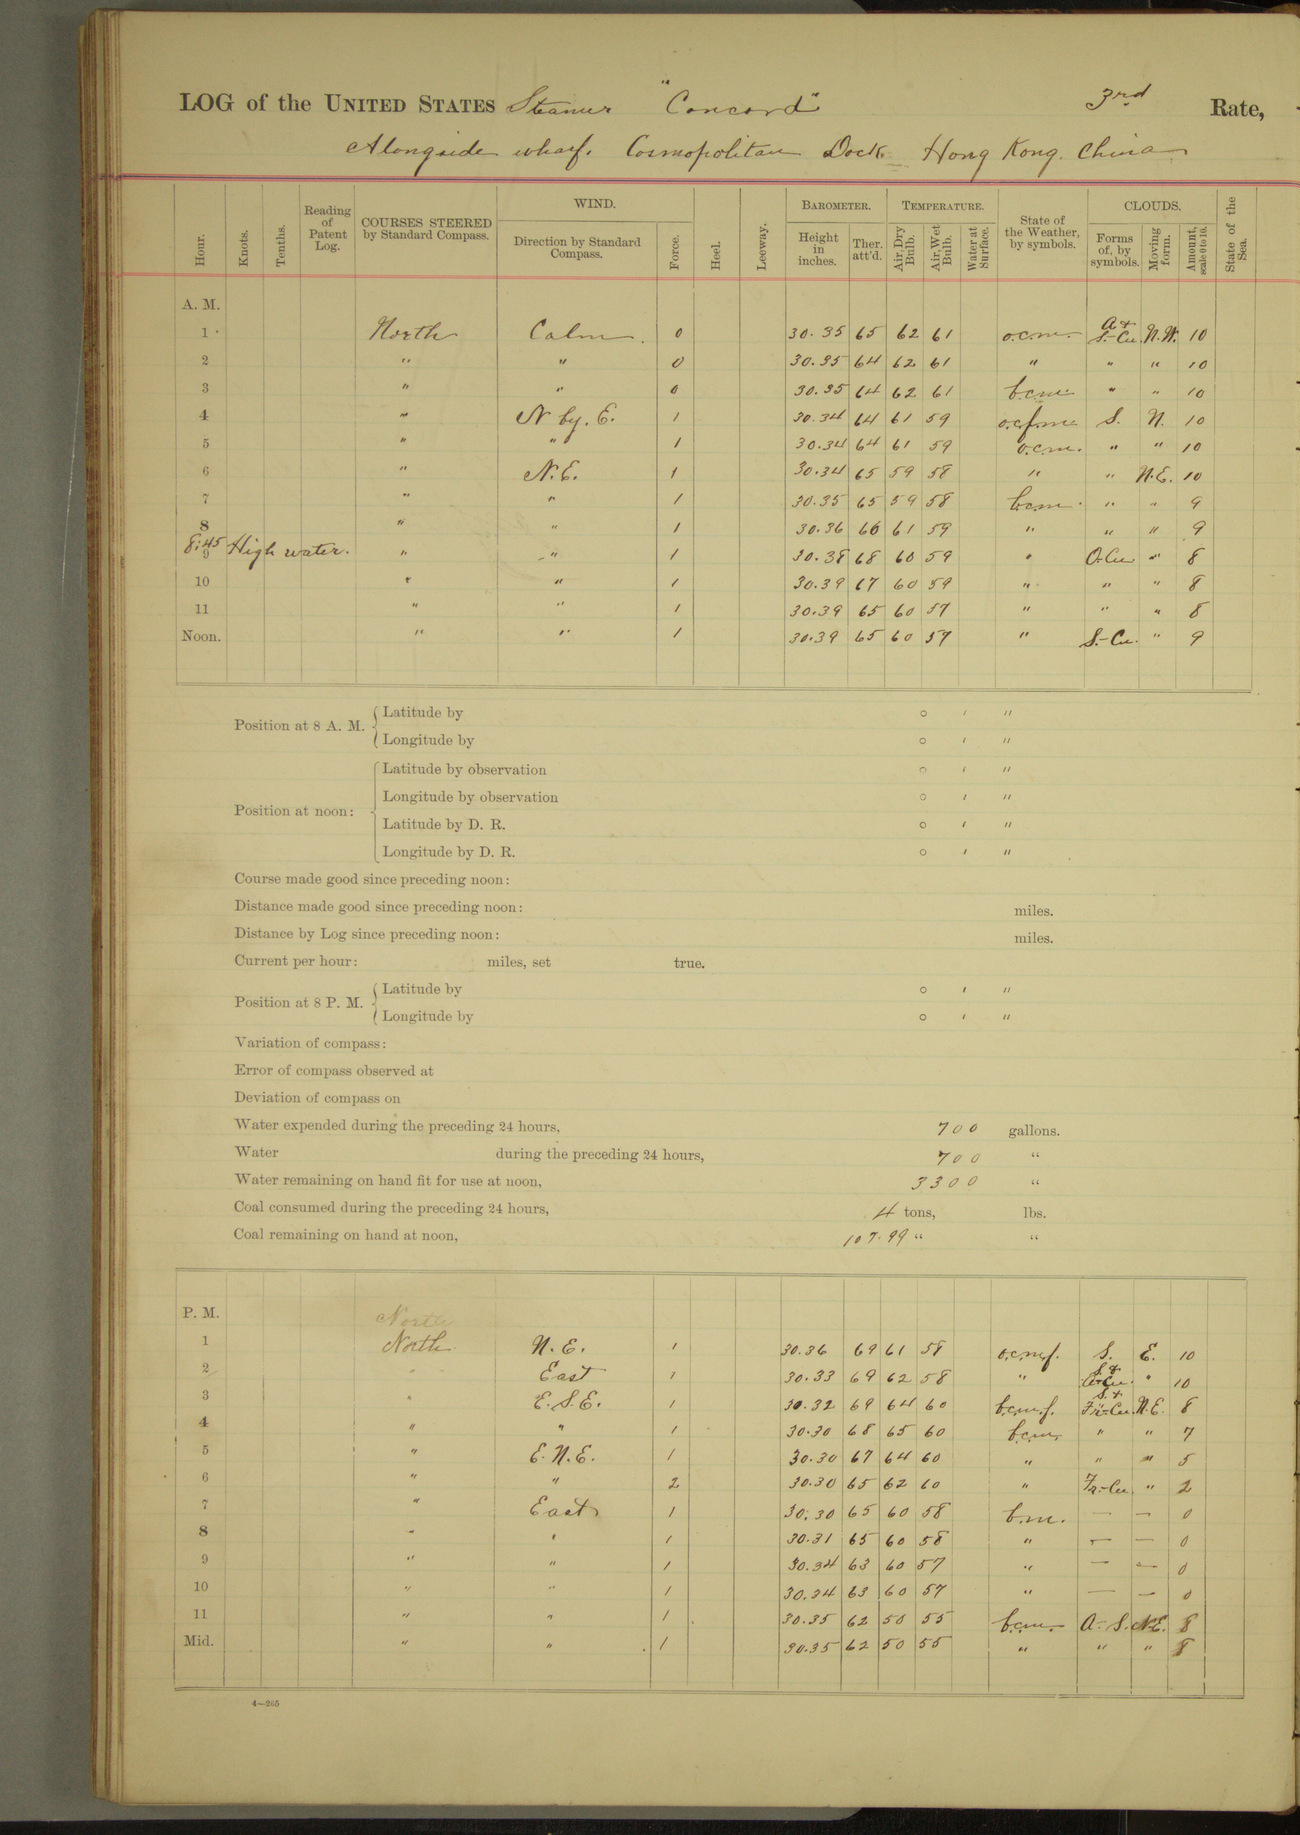 LOG of the UNITED STATES Steamer "Concord" 3rd Rate,
Alongside wharf. Cosmopolitan Dock Hong Kong. China
Hour. Knots. Tenths. Reading of Patent Log. COURSES STEERED by Standard Compass. WIND. Direction by Standard Compass. Force. Heel. Leeway. BAROMETER. Height in inches. Ther. att'd. TEMPERATURE. Air, Dry Bulb. Air, Wet Bulb. Water at Surface. State of the Weather, by symbols. CLOUDS. Forms of, by symbols. Moving form. Amount, scale 0 to 10. State of the Sea.
A. M.
1 North Calm 0 30.35 65 62 61 o.c.m. A & S.-Cu. N.W. 10
2 " " 0 30.35 64 62 61 " " " 10
3 " " 0 30.35 64 62 61 b.c.m. " " 10
4 " N by. E. 1 30.34 64 61 59 o.c.f.m. S. N. 10
5 " " 1 30.34 64 61 59 o.c.m. " " 10
6 " N.E. 1 30.34 65 59 58 " " N.E. 10
7 " " 1 30.35 65 59 58 b.c.m. " " 9
8 " " 1 30.36 66 61 59 " " " 9
8:45 High water.
9 " " 1 30.38 68 60 59 " O-Cu " 8
10 " " 1 30.39 67 60 59 " " " 8
11 " " 1 30.39 65 60 57 " " " 8
Noon. " " 1 30.39 65 60 57 " S.-Cu. " 9
Position at 8 A. M. { Latitude by ° ' "
Longitude by ° ' "
Position at noon: { Latitude by observation ° ' "
Longitude by observation ° ' "
Latitude by D. R. ° ' "
Longitude by D. R. ° ' "
Course made good since preceding noon:
Distance made good since preceding noon: miles.
Distance by Log since preceding noon: miles.
Current per hour: miles, set true.
Position at 8 P. M. { Latitude by ° ' "
Longitude by ° ' "
Variation of compass:
Error of compass observed at
Deviation of compass on
Water expended during the preceding 24 hours, 700 gallons.
Water during the preceding 24 hours, 700 "
Water remaining on hand fit for use at noon, 3300 "
Coal consumed during the preceding 24 hours, 4 tons, lbs.
Coal remaining on hand at noon, 107.99 " "
P. M. North
1 North N.E. 1 30.36 69 61 58 o.c.m.f. S. E. 10
2 " East 1 30.33 69 62 58 " S & " 10
3 " E.S.E. 1 30.32 69 64 60 b.c.m.f. S. + Fr-Cu. N.E. 8
4 " " 1 30.30 68 65 60 b.c.m. " " 7
5 " E.N.E. 1 30.30 67 64 60 " " " 5
6 " " 2 30.30 65 62 60 " Fr-Cu. " 2
7 " East 1 30.30 65 60 58 b.m. — — 0
8 " " 1 30.31 65 60 58 " — — 0
9 " " 1 30.34 63 60 57 " — — 0
10 " " 1 30.34 63 60 57 " — — 0
11 " " 1 30.35 62 50 55 b.c.m. A-S. N.E. 8
Mid. " " 1 30.35 62 50 55 " " " 8
4—265